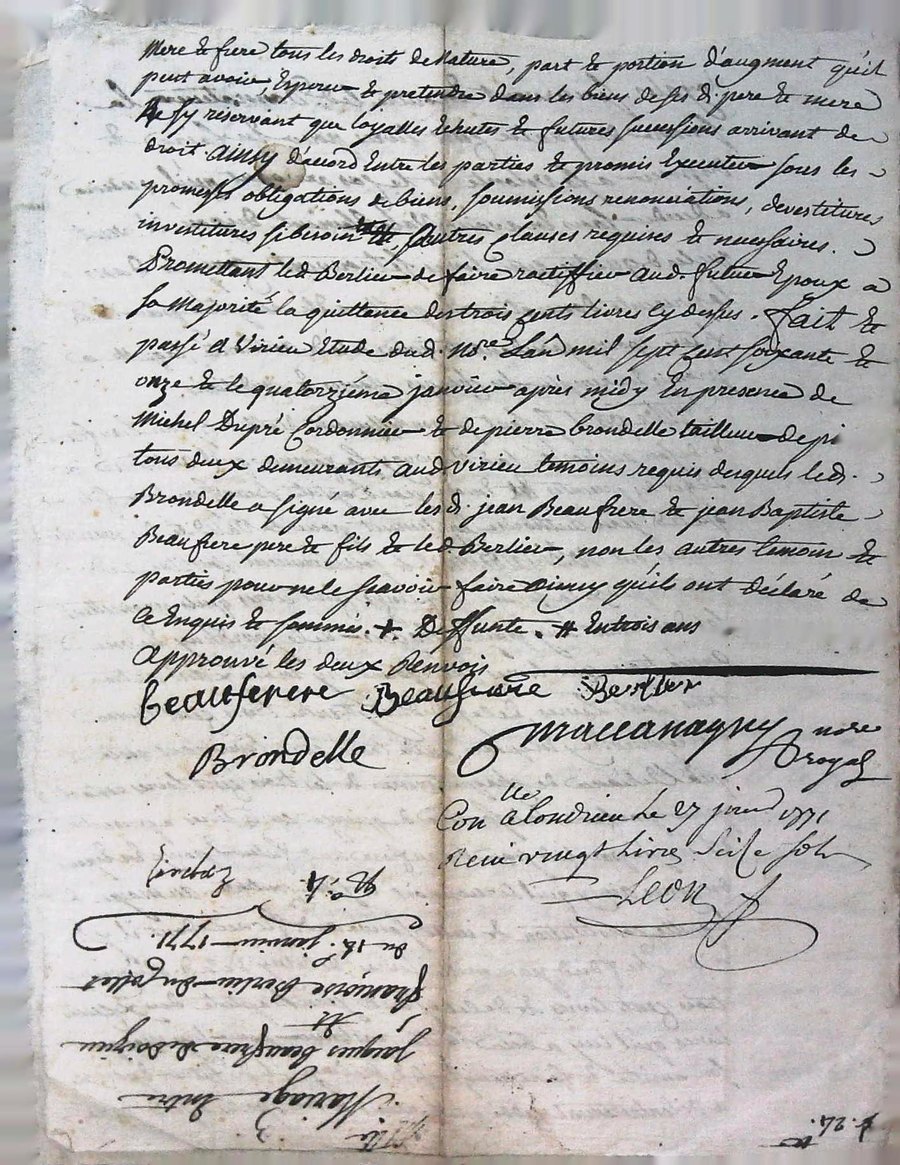 Mere & frere tous les droit de Nature, part & portion d'augment qu'il
peut avoir, Esperer & pretendre dans les biens de ses d. pere & mere
se sy reservant que loyalles Echutes & futures successions arrivant de
droit. ainsy d'acord Entre les parties & promis Executer sous les
promesses obligations de biens, soumissions renonciations, devestitures
investitures si besoin est, & autres clauses requises & necessaires.
Prometant led. Berlier de faire ractiffier aud. futur Epoux a
sa Majorité la quittance des trois cents livres cy dessus. fait &
passé a Virieu Etude dud. no.re L'an mil sept cent soixante &
onze & le quatorzieme janvier après midy En presence de
Michel Dupré Cordonnier & de pierre Brondelle tailleur
tous deux demeurants aud. Virieu temoins requis desquels led.
Brondelle a signé avec lesd. jean Beaufrere & jean Baptiste
Beaufrere pere & fils & led. Berlier, non les autres temoin &
parties pour ne le scavoir faire ainsy qu'ils ont déclaré de
ce Enquis & sommés. + Deffunte. # En trois ans
approuvé les deux Renvois
Beaufrere Beaufrere Berlier
Maccanagny no.re
Brondelle royal
Con.lle a Condrieu le 27 janv. 1771
Receu vingt Livres Seise sols
LEON
Mariage Entre
jacques beaufrere de
&
françoise Berlier
du 14.e janvier 1771.